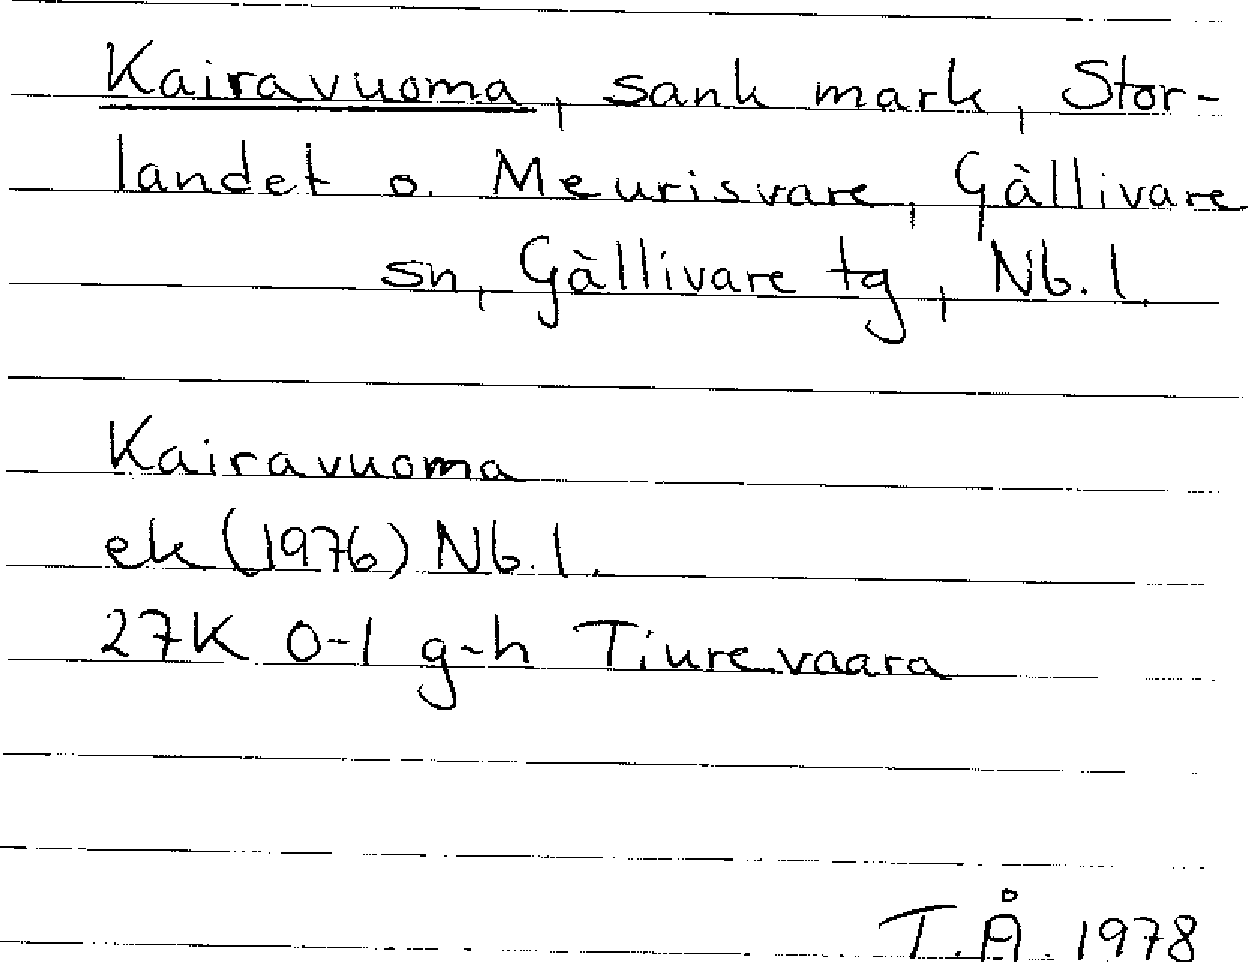 Kairavuoma, sank mark, Stor-
landet o. Meurisvare, Gällivare
sn, Gällivare tg, Nb. l.
Kairavuoma
ek (1976) Nb. l.
27K 0-1 g-h Tiurevaara
T.Å. 1978